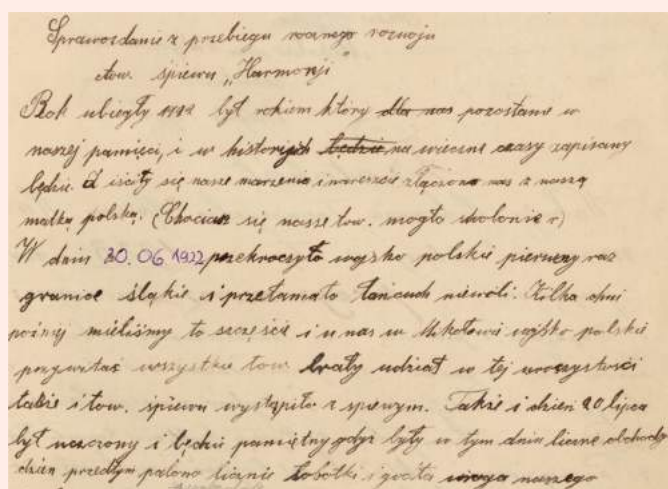 Sprawozdanie z przebiegu rocznego rozwoju
tow. śpiewu „Harmonji"
Rok ubiegły 1922 był rokiem który dla nas pozostanie w
naszej pamięci, i w historjach będzie na wieczne czasy zapisany
będzie. Ziściły się nasze marzenia i nareszcie złączono nas z naszą
matką polską. (Chociaż się nasze tow. mogło
W dniu 30.06 1922 przekroczyło wojsko polskie pierwszy raz
granice śląskie i przełamało łańcuch niewoli. Kilka dni
później mieliśmy to szczęście i u nas w Mikołowie wojsko polskie
przywitać wszystkie tow. brały udział w tej uroczystości
także i tow. śpiewu wystąpiło z śpiewym. Także i dzień 20 lipca
był uczczony i będzie pamiętny gdyż były w tym dniu liczne obchody
dzień przedtym palono licznie sobotki i naszego